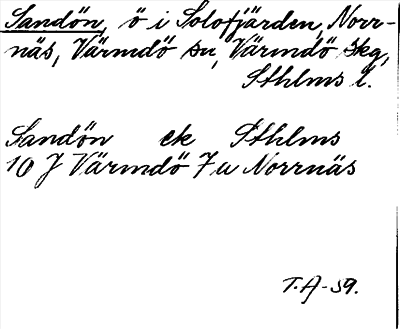 Sandön, ö i Solofjärden, Norr-
näs, Värmdö sn, Värmdö skg,
Sthlms l.
Sandön ek Sthlms
10 J Värmdö 7 u Norrnäs
T.A-59.